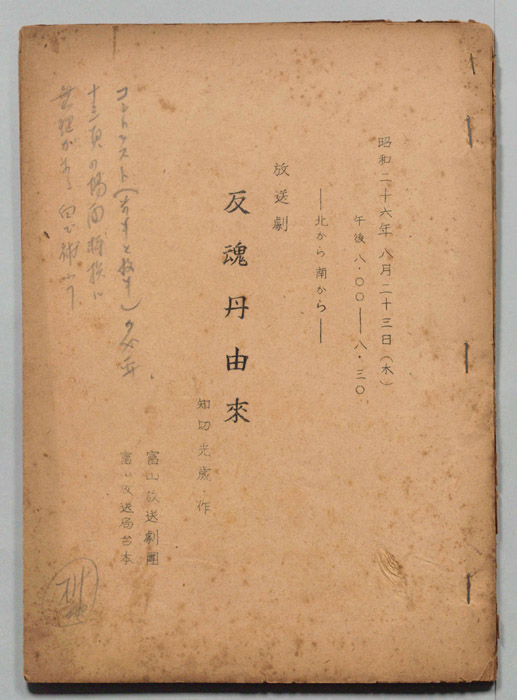 昭和二十六年八月二十三日(木)
午後八・〇〇―八・三〇
―北から南から―
放送劇
反魂丹由來
知切光歳・作
富山放送劇團
富山放送局台本
コントラスト(
十三頁の場面転換に
無理がある